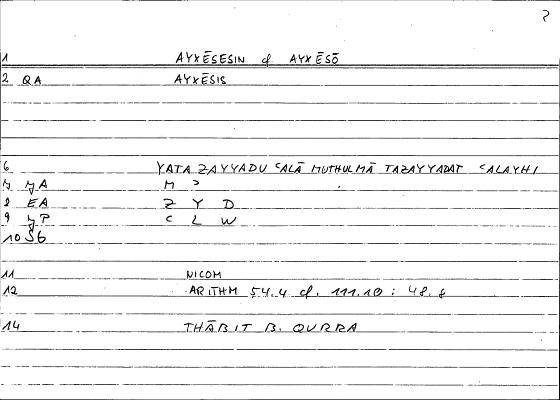 2
1 AYXĒSESIN cf AYXĒSŌ
2 QA AYXĒSIS
6 YATAZAYYADU ʿALĀ MUTHULMĀ TAZAYYADAT ʿALAYHI
7 jA M ʾ
8 EA Z Y D
9 jP ʿ L W
10 SG
11 NICOM
12 ARITHM 54.4 cf. 111.10 : 48.8
14 THĀBIT B. QURRA